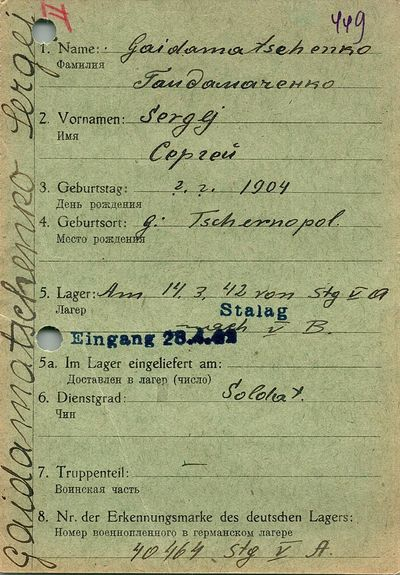 II
449
1. Name: Gaidamatschenko
Фамилия
Гайдамаченко
2. Vornamen: Sergej
Имя
Сергей
3. Geburtstag: ?. ?. 1904
День рождения
4. Geburtsort: g. Tschernopol.
Место рождения
5. Lager: Am 14. 3. 42 von Stg V A
Лагер
Stalag
nach V B.
Eingang 28.4.42
5a. Im Lager eingeliefert am:
Доставлен в лагер (число)
6. Dienstgrad: Soldat.
Чин
7. Truppenteil: —
Воинская часть
8. Nr. der Erkennungsmarke des deutschen Lagers:
Номер военнопленного в германском лагере
40464 Stg V A.
Gaidamatschenko Sergej